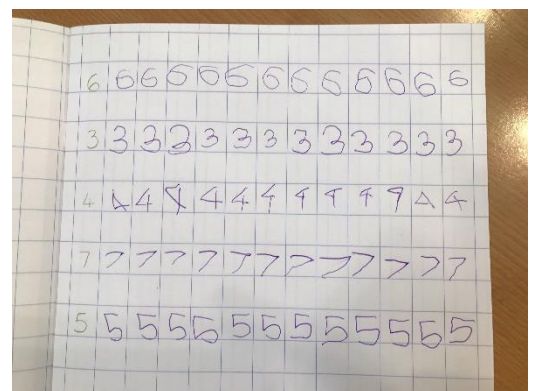 6 6 6 6 6 6 6 6 6 6 6 6 6
3 3 3 3 3 3 3 3 3 3 3 3 3
4 4 4 4 4 4 4 4 4 4 4 4 4
7 7 7 7 7 7 7 7 7 7 7 7 7
5 5 5 5 5 5 5 5 5 5 5 5 5